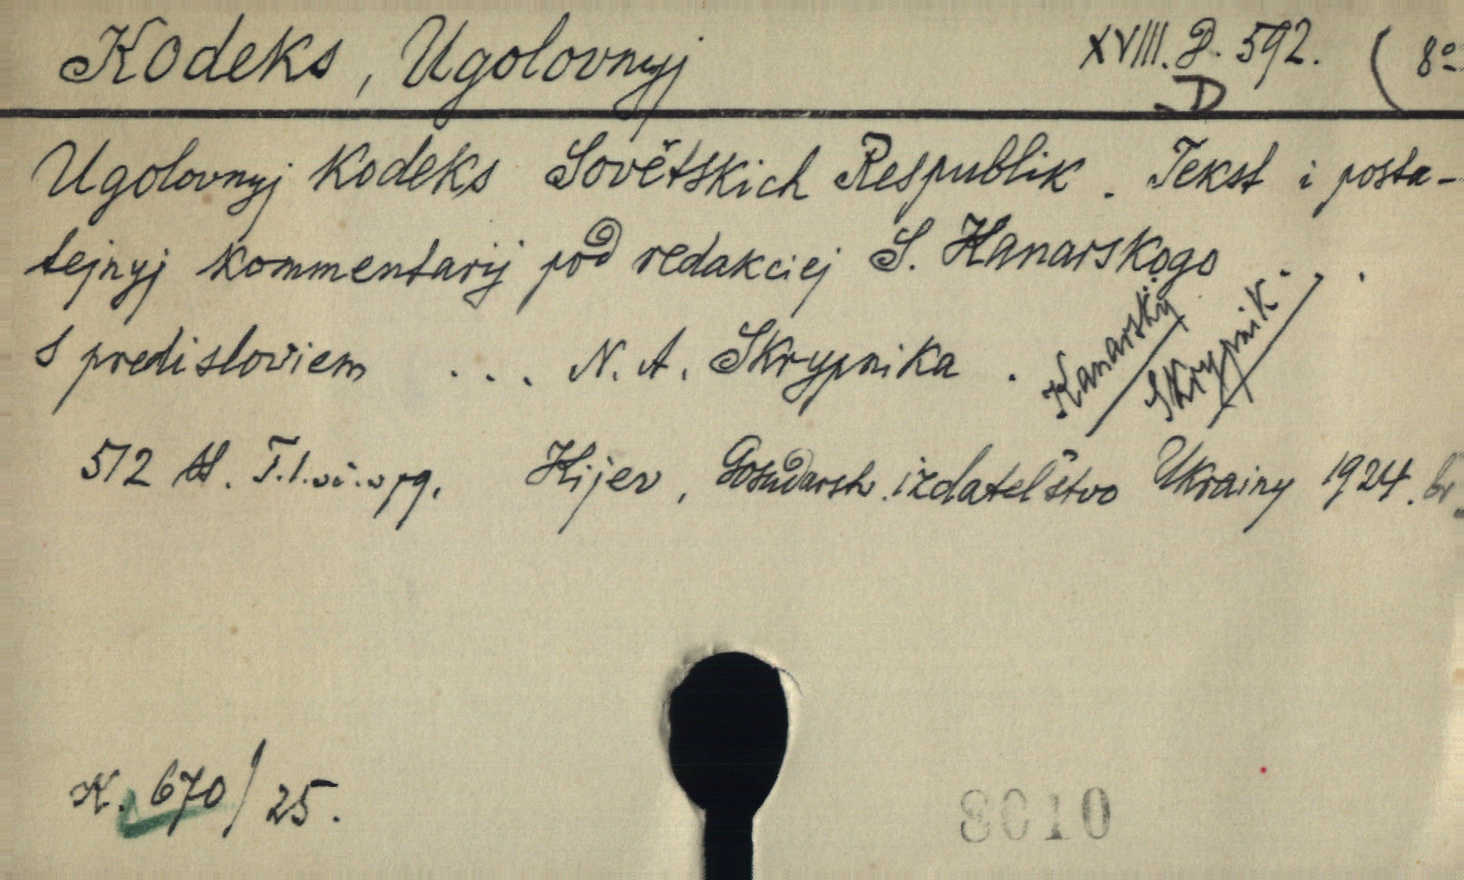 Kodeks, Ugolovnyj XVIII. D. 592. (8º
D
Ugolovnyj Kodeks Sovětskich Respublik. Tekst i posta-
tejnyj kommentarij pod redakciej S. Kanarskogo ...
s predisloviem ... N. A. Skrypnika.
Kanarskij
Skrypnik
512 Kijev, Gosudarstv. izdatel'stvo Ukrainy 1924.
K. 670/25.
8010